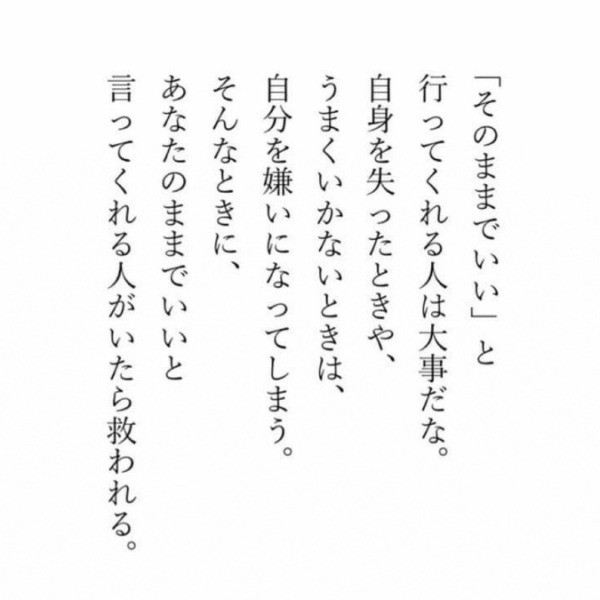 「そのままでいい」と
行ってくれる人は大事だな。
自身を失ったときや、
うまくいかないときは、
自分を嫌いになってしまう。
そんなときに、
あなたのままでいいと
言ってくれる人がいたら救われる。